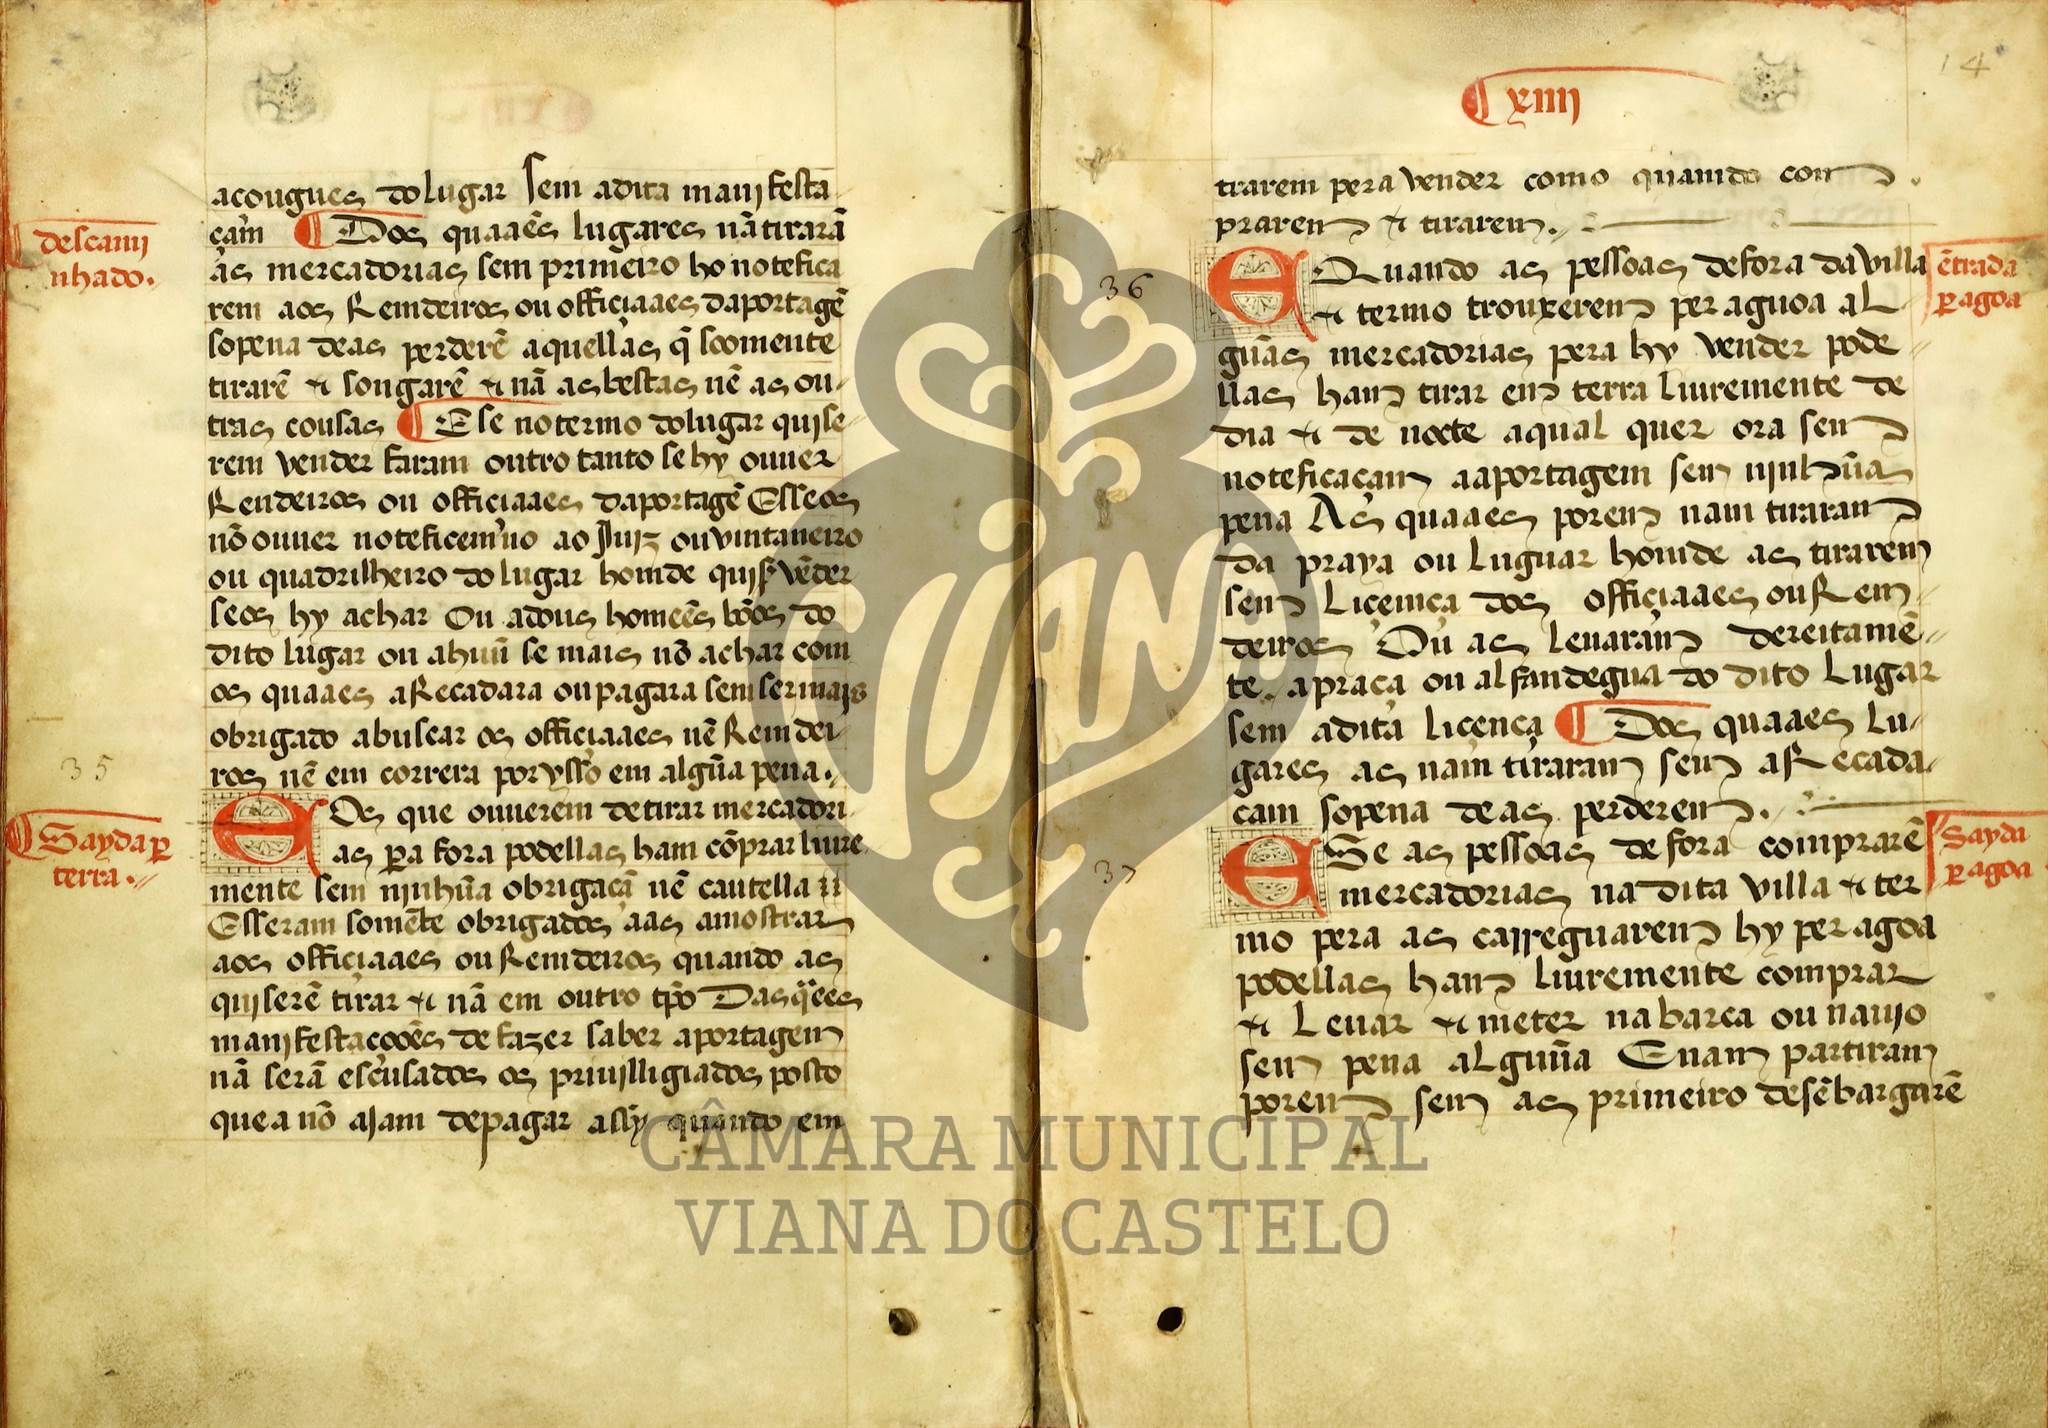 açougues do lugar Sem adita manifesta
çam ¶ Dos quaaēs lugares nã tirarã
as mercadorias sem primeiro ho notefica
rem aos Remdeiros ou officiaaes daportagē
sopena deas perderē aquellas q̃ soomente
tirarē & songarē & nã as bestas nē as ou-
tras cousas ¶ E se no termo do lugar quise-
rem vender faram outro tanto se hy ouuer
Rendeiros ou officiaaes daportagē E sse os
nõ ouuer noteficemno ao Juiz ou vintaneiro
ou quadrilheiro do lugar homde quiser vēder
se os hy achar Ou adous homeēs bõos do
dito lugar ou ahuū se mais nõ achar com
os quaaes aRecadara ou pagara sem ser mais
obrigado abuscar os officiaaes nē Remdei-
ros nē em correra por ysso em algũa pena.
descami
nhado.
35
¶ Sayda per
terra.
E Os que ouuerem de tirar mercadori-
as pera fora podellas ham cõprar liure
mente sem ninhũa obrigaçã nē cautella
E sseram somēte obrigados aas amostrar
aos officiaaes ou Remdeiros quando as
quiserē tirar & nã em outro tpõ Das q̃ees
manifestaçooēs de fazer saber aportagem
nã serã escusados os priuilligiados posto
que a nõ ajam depagar assy quando em
¶ xiiij
14
trarem pera vender como quamdo com
prarem & tirarem.
36
E Quando as pessoas de fora da villa
& termo trouxerem per aguoa al-
guãs mercadorias pera hy vender pode-
llas ham tirar em terra liuremente de
dia & de nocte aqual quer ora sem
noteficaçam aaportagem sem ninhũa
pena As quaaes porem nam tiraram
da praya ou luguar homde as tirarem
sem Liçemça dos officiaaes ou Rem-
deiros Ou as leuaram dereitamē-
te apraça ou alfandegua do dito Lugar
sem adita liçença ¶ Dos quaaes lu-
gares as nam tiraram sem aRecada-
çam sopena deas perderem.
ētrada
per agoa
37
E Se as pessoas de fora comprarē
mercadorias na dita villa & ter
mo pera as carreguarem hy per agoa
podellas ham liuremente comprar
& Leuar & meter na barca ou nauio
sem pena alguũa E nam partiram
porem sem as primeiro desēbargarē
Sayda
per agoa
CÂMARA MUNICIPAL
VIANA DO CASTELO